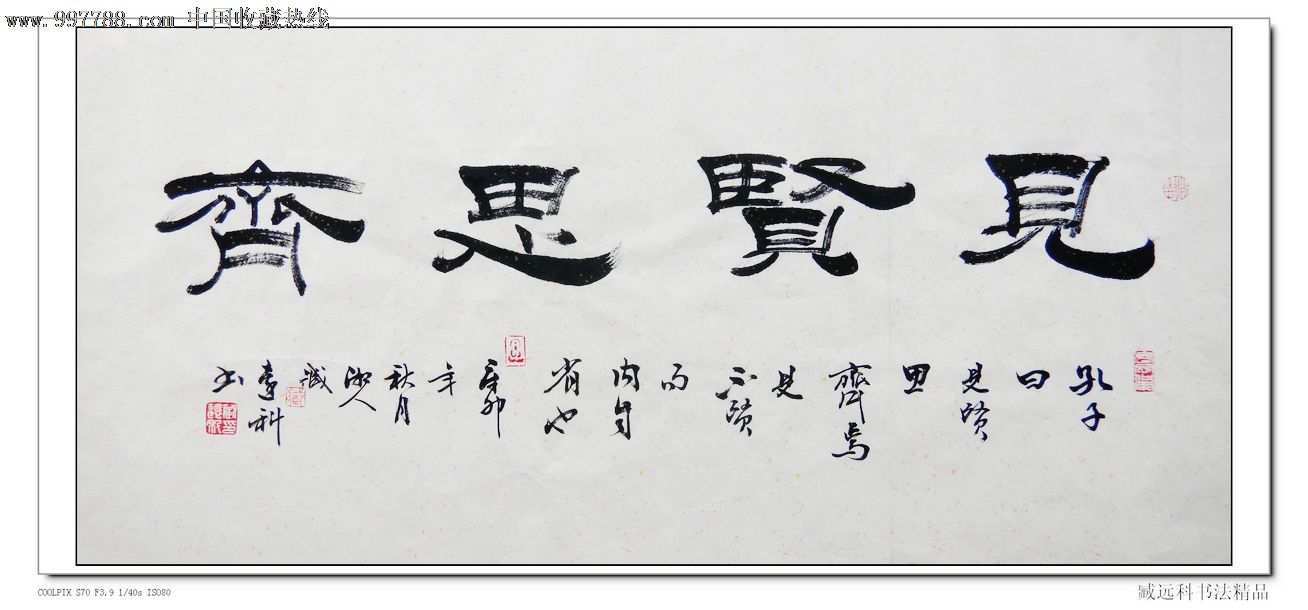 www.997788.com 中国收藏热线
見賢思齊
孔子曰見贤思齊焉見不贤而内自省也辛卯年秋月湖人臧遠科书
COOLPIX S70 F3.9 1/40s ISO80
臧远科书法精品